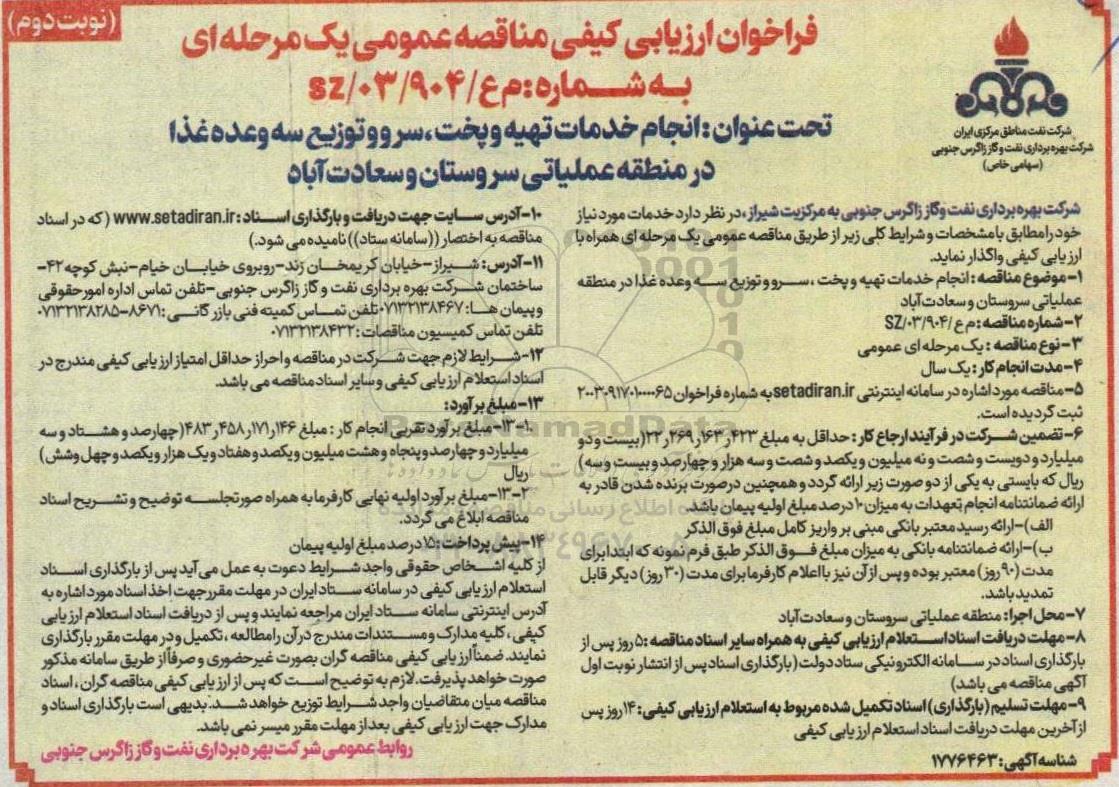 (نوبت دوم)
فراخوان ارزیابی کیفی مناقصه عمومی یک مرحله ای
به شماره: م ع/۹۰۴/۰۳/SZ
تحت عنوان: انجام خدمات تهیه و پخت، سرو و توزیع سه وعده غذا
در منطقه عملیاتی سروستان و سعادت آباد
شرکت نفت مناطق مرکزی ایران
شرکت بهره برداری نفت و گاز زاگرس جنوبی
(سهامی خاص)
شرکت بهره برداری نفت وگاز زاگرس جنوبی به مرکزیت شیراز، در نظر دارد خدمات مورد نیاز
خود را مطابق با مشخصات و شرایط کلی زیر از طریق مناقصه عمومی یک مرحله ای همراه با
ارزیابی کیفی واگذار نماید.
۱-موضوع مناقصه: انجام خدمات تهیه و پخت، سرو و توزیع سه وعده غذا در منطقه
عملیاتی سروستان و سعادت آباد
۲-شماره مناقصه: م ع/۹۰۴/۰۳/SZ
۳-نوع مناقصه: یک مرحله ای عمومی
۴-مدت انجام کار: یک سال
۵-مناقصه مورد اشاره در سامانه اینترنتی setadiran.ir به شماره فراخوان ۲۰۰۳۰۹۱۷۰۱۰۰۰۰۶۵
ثبت گردیده است.
۶-تضمین شرکت در فرآیند ارجاع کار: حداقل به مبلغ ۲۲٫۲۶۹٫۱۶۳٫۴۲۳ (بیست و دو
میلیارد و دویست و شصت و نه میلیون و یکصد و شصت و سه هزار و چهارصد و بیست و سه)
ریال که بایستی به یکی از دو صورت زیر ارائه گردد و همچنین درصورت برنده شدن قادر به
ارائه ضمانتنامه انجام تعهدات به میزان ۱۰درصد مبلغ اولیه پیمان باشد.
الف)-ارائه رسید معتبر بانکی مبنی بر واریز کامل مبلغ فوق الذکر
ب)-ارائه ضمانتنامه بانکی به میزان مبلغ فوق الذکر طبق فرم نمونه که ابتدا برای
مدت (۹۰روز) معتبر بوده و پس از آن نیز با اعلام کارفرما برای مدت (۳۰روز) دیگر قابل
تمدید باشد.
۷-محل اجرا: منطقه عملیاتی سروستان و سعادت آباد
۸-مهلت دریافت اسناد استعلام ارزیابی کیفی به همراه سایر اسناد مناقصه: ۵روز پس از
بارگذاری اسناد در سامانه الکترونیکی ستاد دولت (بارگذاری اسناد پس از انتشار نوبت اول
آگهی مناقصه می باشد)
۹-مهلت تسلیم (بارگذاری) اسناد تکمیل شده مربوط به استعلام ارزیابی کیفی: ۱۴روز پس
از آخرین مهلت دریافت اسناد استعلام ارزیابی کیفی
شناسه آگهی: ۱۷۷۶۴۶۳
۱۰-آدرس سایت جهت دریافت و بارگذاری اسناد: www.setadiran.ir (که در اسناد
مناقصه به اختصار ((سامانه ستاد)) نامیده می شود.)
۱۱-آدرس: شیراز-خیابان کریمخان زند-روبروی خیابان خیام-نبش کوچه۴۲-
ساختمان شرکت بهره برداری نفت و گاز زاگرس جنوبی-تلفن تماس اداره امور حقوقی
و پیمان ها: ۰۷۱۳۲۱۳۸۴۶۷ تلفن تماس کمیته فنی بازرگانی: ۸۶۷۱-۰۷۱۳۲۱۳۸۲۸۵
تلفن تماس کمیسیون مناقصات: ۰۷۱۳۲۱۳۸۴۳۲
۱۲-شرایط لازم جهت شرکت در مناقصه و احراز حداقل امتیاز ارزیابی کیفی مندرج در
اسناد استعلام ارزیابی کیفی و سایر اسناد مناقصه می باشد.
۱۳-مبلغ برآورد:
۱-۱۳-مبلغ برآورد تقریبی انجام کار: مبلغ ۴۸۳٫۴۵۸٫۱۷۱٫۱۴۶ (چهارصد و هشتاد و سه
میلیارد و چهارصد و پنجاه و هشت میلیون و یکصد و هفتاد و یک هزار و یکصد و چهل وشش)
ریال
۲-۱۳-مبلغ برآورد اولیه نهایی کارفرما به همراه صورتجلسه توضیح و تشریح اسناد
مناقصه ابلاغ می گردد.
۱۴-پیش پرداخت: ۱۵درصد مبلغ اولیه پیمان
از کلیه اشخاص حقوقی واجد شرایط دعوت به عمل می آید پس از بارگذاری اسناد
استعلام ارزیابی کیفی در سامانه ستاد ایران در مهلت مقرر جهت اخذ اسناد مورد اشاره به
آدرس اینترنتی سامانه ستاد ایران مراجعه نمایند و پس از دریافت اسناد استعلام ارزیابی
کیفی، کلیه مدارک و مستندات مندرج در آن را مطالعه، تکمیل و در مهلت مقرر بارگذاری
نمایند. ضمناً ارزیابی کیفی مناقصه گران بصورت غیرحضوری و صرفاً از طریق سامانه مذکور
صورت خواهد پذیرفت. لازم به توضیح است که پس از ارزیابی کیفی مناقصه گران، اسناد
مناقصه میان متقاضیان واجد شرایط توزیع خواهد شد. بدیهی است بارگذاری اسناد و
مدارک جهت ارزیابی کیفی بعد از مهلت مقرر میسر نمی باشد.
روابط عمومی شرکت بهره برداری نفت و گاز زاگرس جنوبی